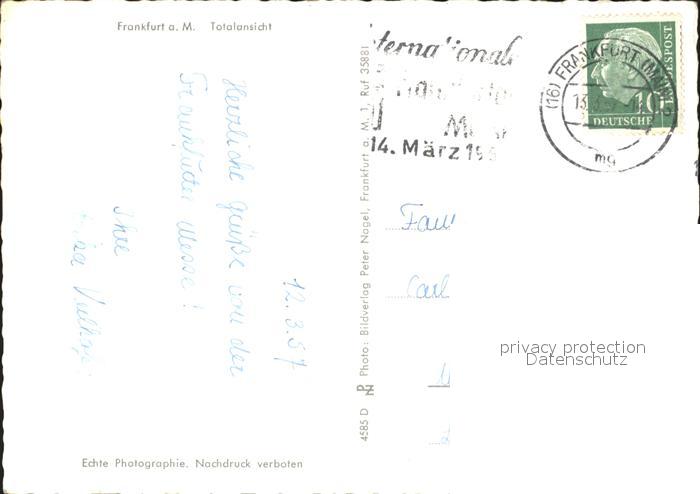 Frankfurt a. M. Totalansicht
12.3.57
Herzliche Grüße von der
Frankfurter Messe!
Ihre
Echte Photographie. Nachdruck verboten
4585 D Photo: Bildverlag Peter Nagel, Frankfurt a. M. 1, Ruf 35881
14. März 195
(16) FRANKFURT (MAIN)
mg
10
DEUTSCHE
BUNDESPOST
Fam
Carl
privacy protection
Datenschutz